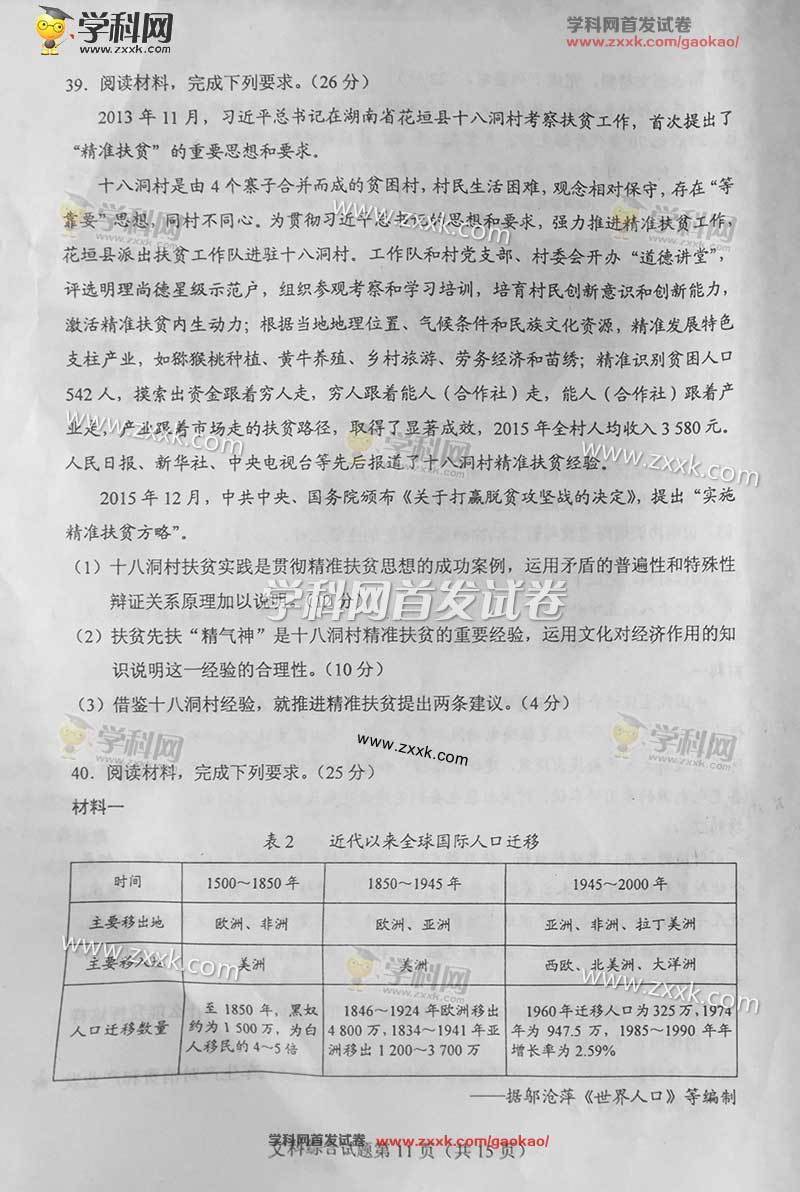 学科网
www.zxxk.com
学科网首发试卷
www.zxxk.com/gaokao/
39．阅读材料，完成下列要求。（26 分）
2013 年 11 月，习近平总书记在湖南省花垣县十八洞村考察扶贫工作，首次提出了
“精准扶贫”的重要思想和要求。
十八洞村是由 4 个寨子合并而成的贫困村，村民生活困难，观念相对保守，存在“等
靠要”思想，同村不同心。为贯彻习近平总书记的思想和要求，强力推进精准扶贫工作，
花垣县派出扶贫工作队进驻十八洞村。工作队和村党支部、村委会开办“道德讲堂”，
评选明理尚德星级示范户，组织参观考察和学习培训，培育村民创新意识和创新能力，
激活精准扶贫内生动力；根据当地地理位置、气候条件和民族文化资源，精准发展特色
支柱产业，如猕猴桃种植、黄牛养殖、乡村旅游、劳务经济和苗绣；精准识别贫困人口
542 人，摸索出资金跟着穷人走，穷人跟着能人（合作社）走，能人（合作社）跟着产
业走，产业跟着市场走的扶贫路径，取得了显著成效，2015 年全村人均收入 3 580 元。
人民日报、新华社、中央电视台等先后报道了十八洞村精准扶贫经验。
2015 年 12 月，中共中央、国务院颁布《关于打赢脱贫攻坚战的决定》，提出“实施
精准扶贫方略”。
（1）十八洞村扶贫实践是贯彻精准扶贫思想的成功案例，运用矛盾的普遍性和特殊性
辩证关系原理加以说明。（12 分）
（2）扶贫先扶“精气神”是十八洞村精准扶贫的重要经验，运用文化对经济作用的知
识说明这一经验的合理性。（10 分）
（3）借鉴十八洞村经验，就推进精准扶贫提出两条建议。（4 分）
www.zxxk.com
40．阅读材料，完成下列要求。（25 分）
材料一
表 2 近代以来全球国际人口迁移
时间 1500～1850 年 1850～1945 年 1945～2000 年
主要移出地 欧洲、非洲 欧洲、亚洲 亚洲、非洲、拉丁美洲
主要移入地 美洲 美洲 西欧、北美洲、大洋洲
人口迁移数量 至 1850 年，黑奴 1846～1924 年欧洲移出 1960年迁移人口为 325 万，1974
约为 1 500万，为白 4 800 万，1834～1941 年亚 年为 947.5 万，1985～1990 年年
人移民的 4～5 倍 洲移出 1 200～3 700 万 增长率为 2.59%
——据邬沧萍《世界人口》等编制
学科网首发试卷 www.zxxk.com/gaokao/
文科综合试题第 11 页（共 15 页）